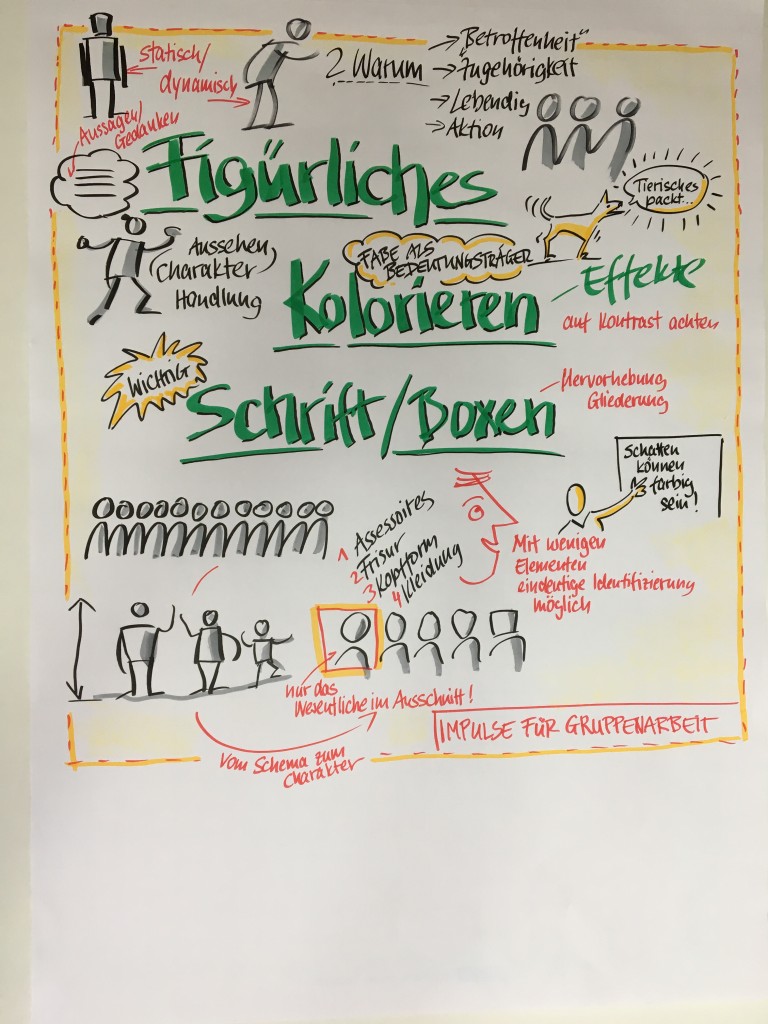 statisch/
dynamisch
? Warum
→ "Betroffenheit"
→ Zugehörigkeit
→ Lebendig
→ Aktion
Aussagen/
Gedanken
Figürliches
Tierisches
packt...
Aussehen,
Charakter,
Handlung
FABE ALS
BEDEUTUNGSTRÄGER
Kolorieren
– Effekte
auf Kontrast achten
WICHTIG
Schrift/Boxen
– Hervorhebung
Gliederung
Schatten
können
farbig
sein!
1 Assessoires
2 Frisur
3 Kopfform
4 Kleidung
Mit wenigen
Elementen
eindeutige Identifizierung
möglich
nur das
Wesentliche im Ausschnitt!
IMPULSE FÜR GRUPPENARBEIT
Vom Schema zum
Charakter